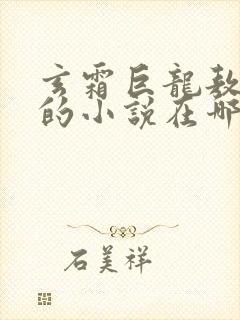 玄霜巨龍敖
的小說在哪
石美祥